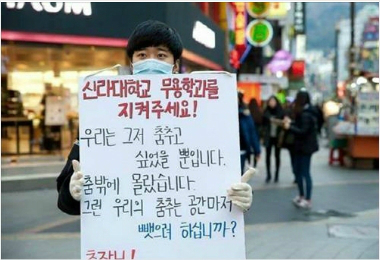 신라대학교 무용학과를
지켜주세요!
우리는 그저 춤추고
싶었을 뿐입니다.
춤밖에 몰랐습니다.
그런 우리의 춤추는 공간마저
뺏으려 하십니까?